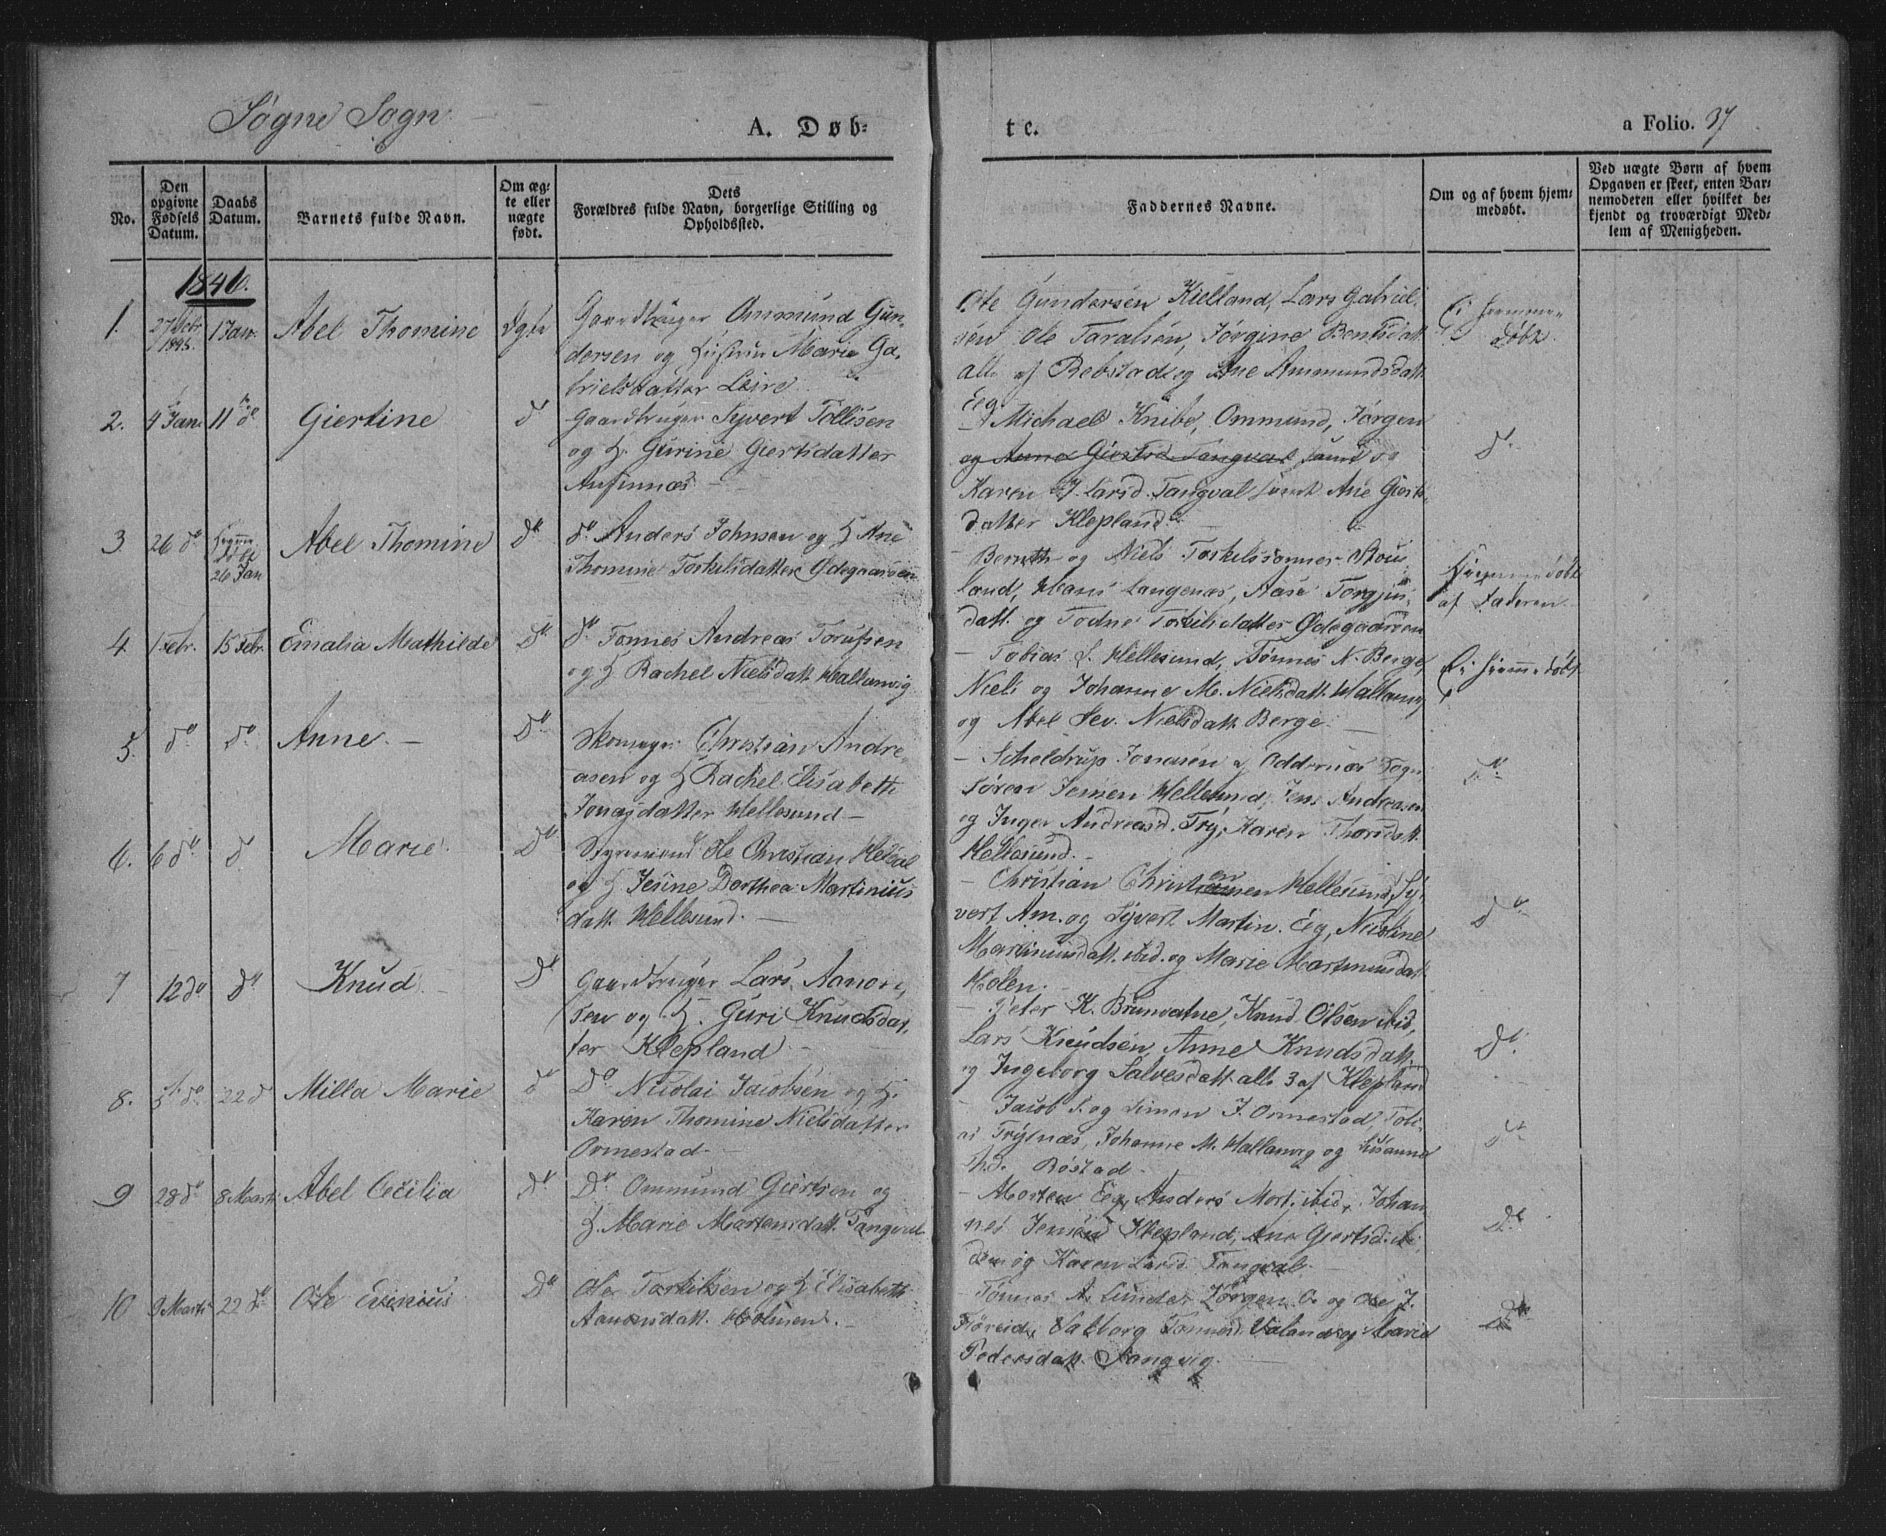 Søgne Sogn
A. Døb-
te.
a Folio. 37
No.
Den opgivne Fødsels Datum.
Daabs Datum.
Barnets fulde Navn.
Om ægte eller nægte født.
Dets
Forældres fulde Navn, borgerlige Stilling og
Opholdssted.
Faddernes Navne.
Om og af hvem hjem-
medøbt.
Ved uægte Børn af hvem
Opgaven er skeet, enten Bar-
nemoderen eller hvilket be-
kjendt og troværdigt Med-
lem af Menigheden.
1846.
1. 1845. 1 Jan. Abel Thomine Ægte
Gaardbruger Ommund Gun-
dersen og Hustru Marie Ga-
brielsdatter Leire
Ole Gundersen Kielland, Lars Gabriel-
sen Ole Taralsen, Jørgine Bentsdatt.
alle af Rebstad og Ane Ammundsdatt.
Eg.
Ei hjemme-
døbt.
2. 4 Jan. 11 do Giertine do
Gaardbruger Syvert Tollisen
og H. Gurine Giertsdatter
Aufinnæs
Michael Knibe, Ommund, Jørgen
og Anne Giertsd. Tangval samt og
Karen Larsd. Tangval samt Ane Gierts-
datter Klepland.
do
3 26 do Hjemme
døbt
26 Jan Abel Thomine do
do Anders Johnsen og H Ane
Thomine Torkelsdatter Ødegaarden
Bernth og Niels Torkelssønner Stou-
land, Hans Langenæs, Aase Torgjus-
datt. og Todne Torkelsdatter Ødegaarden
Hjemmedøbt
af Faderen
4. 1 Febr. 15 Febr. Emalia Mathilde do
do Tønnes Andreas
og H Rachel Nielsdatt. Hallanvig
Tobias S. Hellesund, Tønnes N. Berge,
Niels og Johanne M. Nielsdatt. Hallanvig
og Abel Sev. Nielsdatt. Berge
Ei hjemmedøbt
5. do do Anne. do
Skomager Christian Andre-
asen og H Rachel Elisabeth
Jonasdatter Hellesund
Scheldrup Jonasen af Oddernæs Sogn
Søren Jensen Hellesund, Jens Andreasen
og Inger Andreasd. Try, Karen Thorsdatt.
Hellesund.
do
6. 6 do do Marie. do
Styrmand Ole Christian
og H Jesine Dorthea Martinius
datt. Hellesund.
Christian Christensen Hellesund, Sy-
vert Am. og Syvert Martin. Eg, Nicoline
Martiniusdatt. ibid. og Marie Martiniusdatt.
Holen.
do
7 12 do do Knud do
Gaardbruger Lars Aanon-
sen og H. Guri Knudsdat-
ter Klepland
Peter K. Brunvatne, Knud Olsen ibid,
Lars Knudsen Anne Knudsdatt.
og Ingeborg Salvesdatt. alle 3 af Klepland
do
8. do 22 do Milla Marie do
do Nicolai Jacobsen og H.
Karen Thomine Nielsdatter
Ormestad
Jacob S. og Simon J. Ormestad, Tobi-
as Trysnæs, Johanne M. Hallanvig og Susanne
Røstad
do
9 28 do 8 Marts Abel Cecilia do
do Ommund Giertsen og
H. Marie Martensdatt. Tangval
Morten Eg, Anders Mort. ibid, Johan
nes Jensen Klepland, Ane Giertsd. ibi
dem og Karen Larsd. Tangval.
do
10 9 Marts 22 do Ole do
Ole Torkilsen og H Elisabeth
Aanonsdatt. Holmen.
Tønnes A. Lunde, Jørgen O. og Ole J.
Valborg Tønnesd. Valand og Maria
Pedersdatt. Sangvig.
do